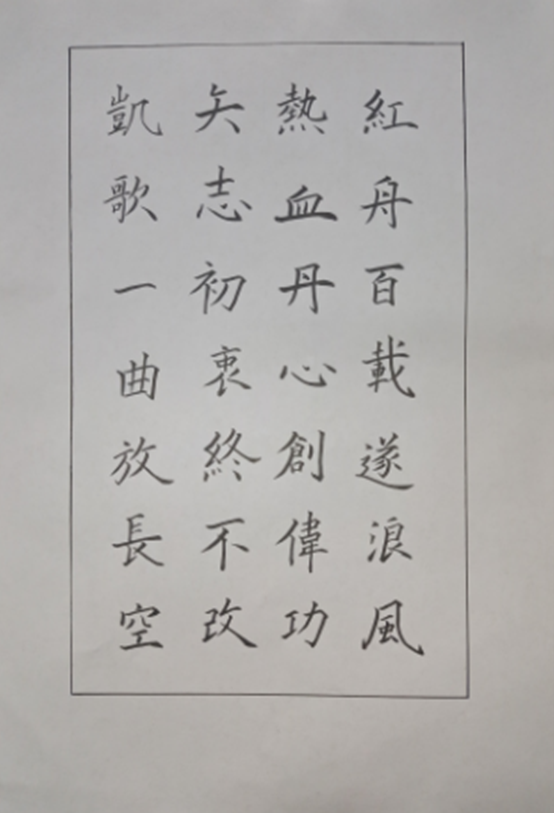 紅舟百載遂浪風
熱血丹心創偉功
矢志初衷終不改
凱歌一曲放長空